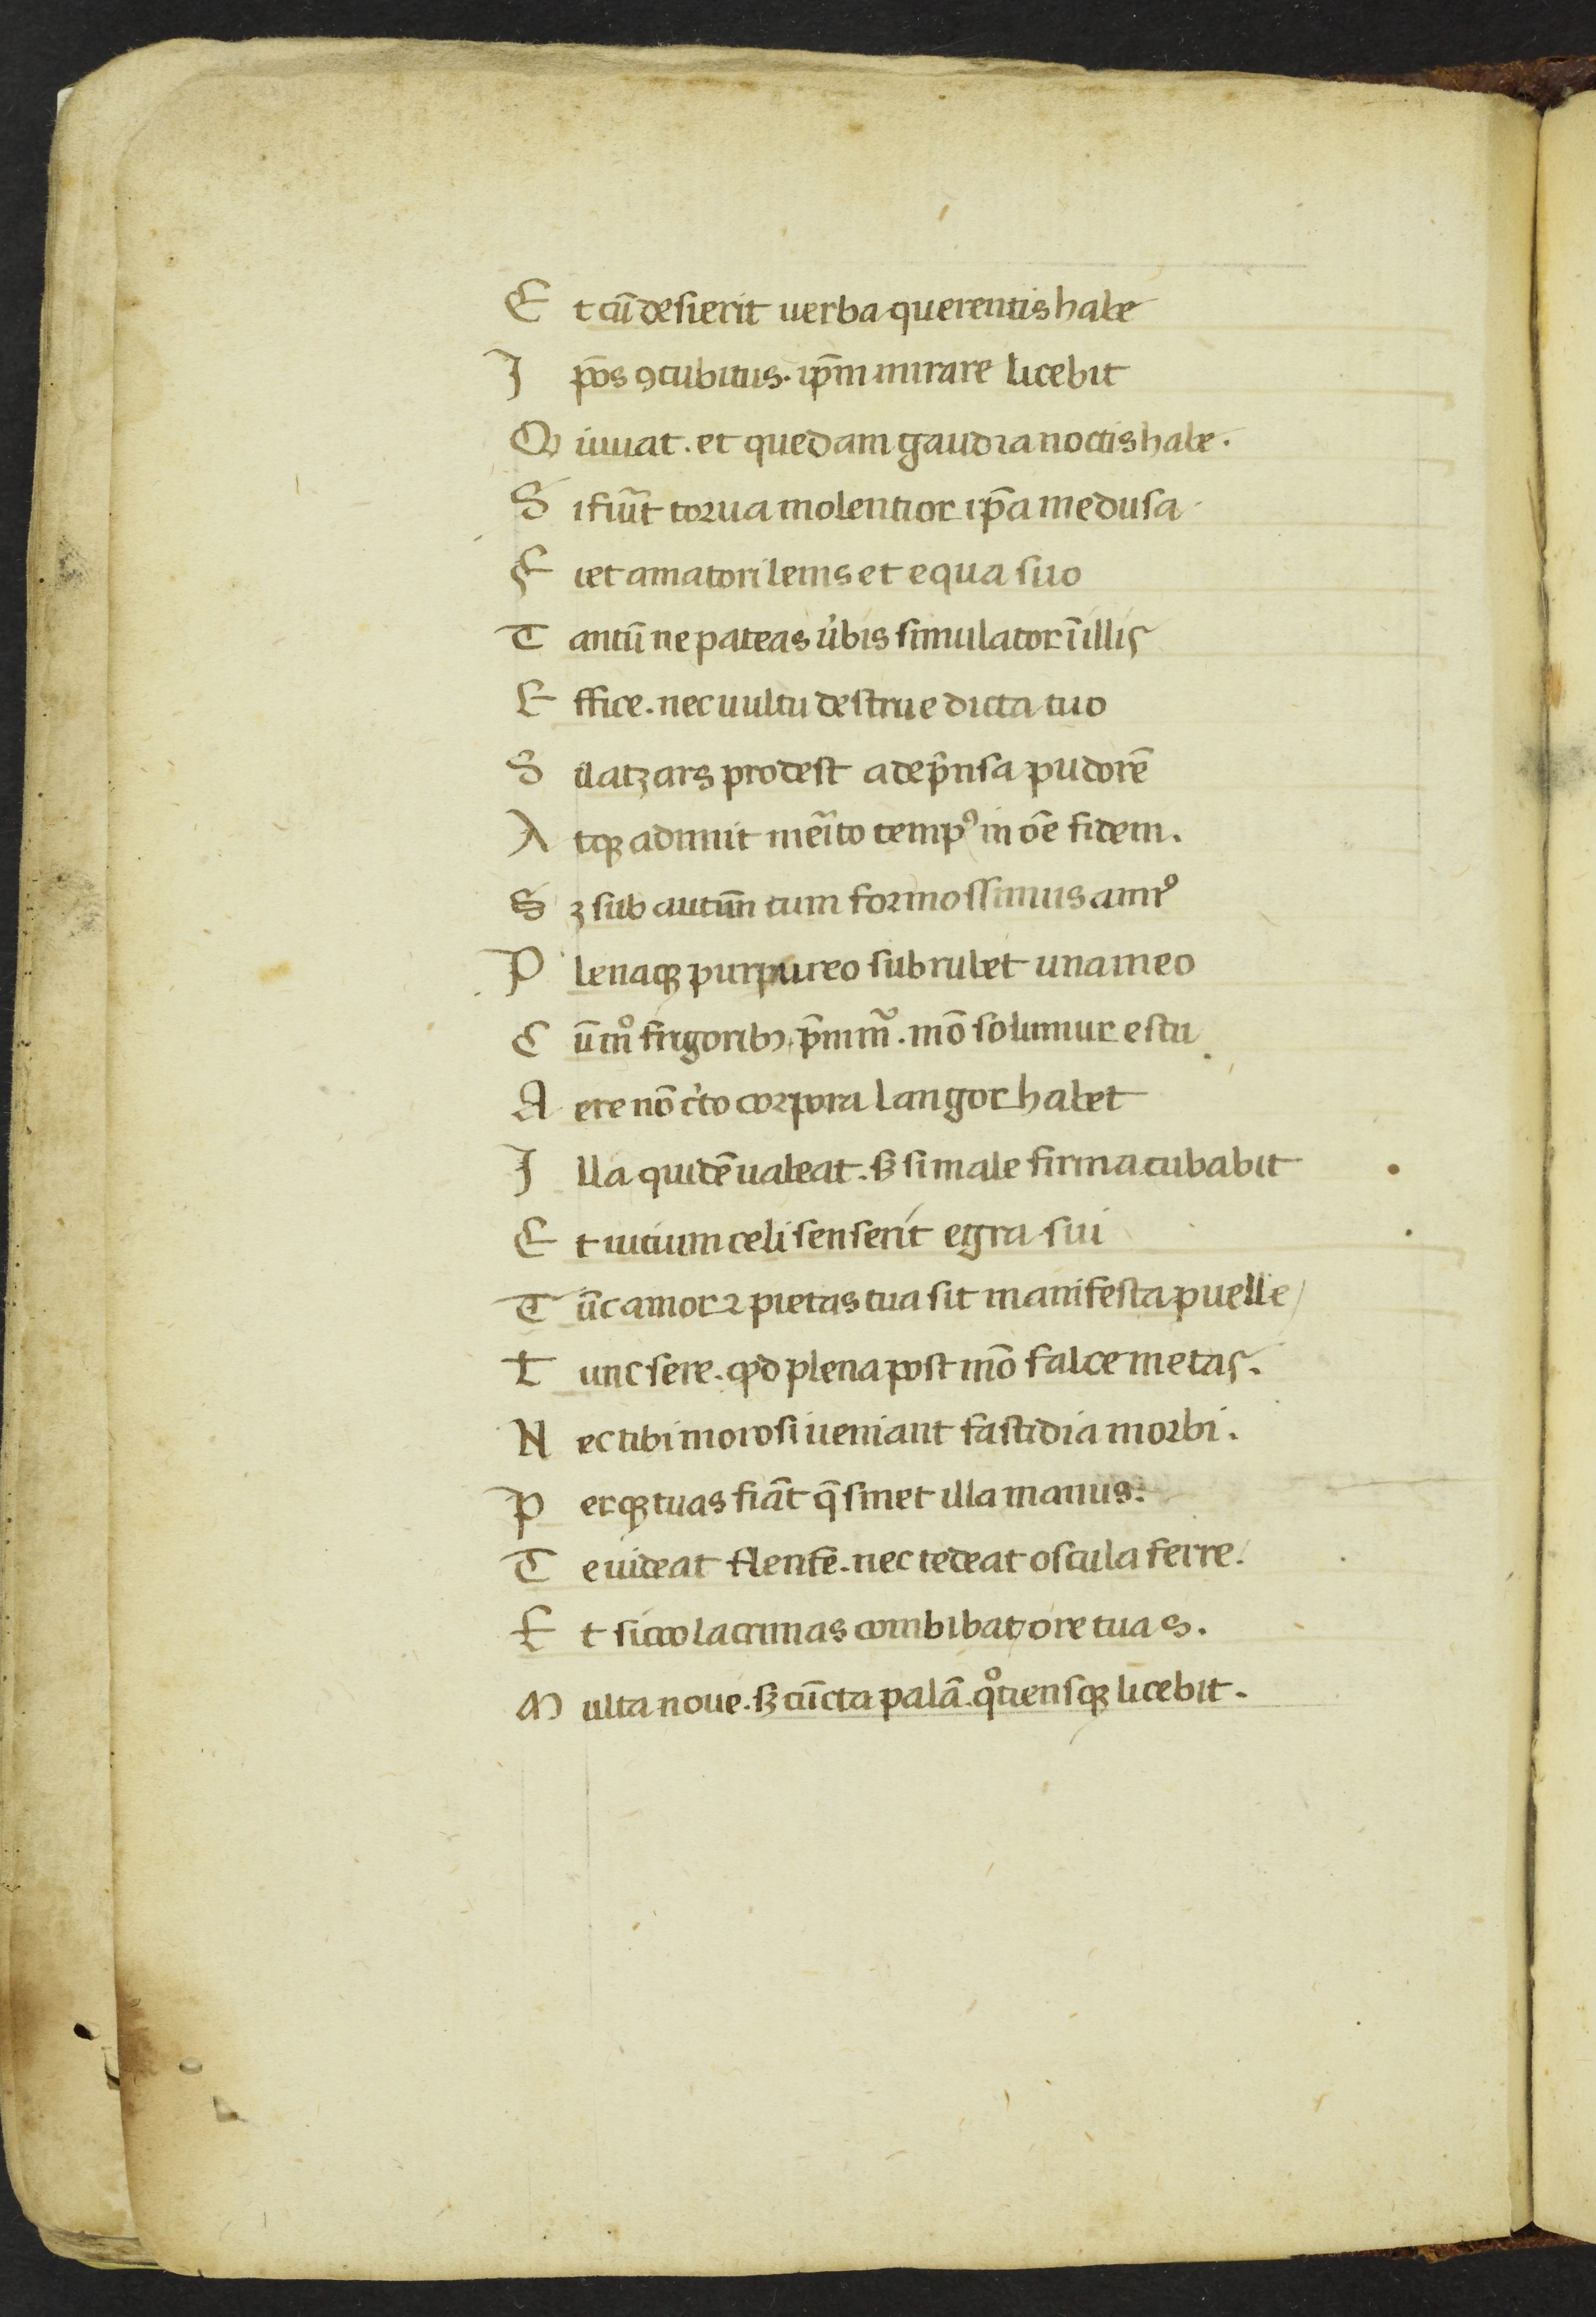 E t cũ desierit uerba querentis habe
I p̄os ꝯcubitus. ip̄m mirare licebit
Q iuuat. et quedam gaudia noctis habe.
S i fiũt torua molentior ip̄a medusa
F iet amatori lenis et equa suo
T antũ ne pateas úbis simulator ĩ illis
E ffice. nec uultu destrue dicta tuo
S ĩ latꝫ ars prodest adep̃nsa pudorē
A tqꝫ adimit meĩto tempꝰ in oē fidem.
S ꝫ sub autũm cum formossimus annꝰ
P lenaqꝫ purpureo subrubet una meo
C ũ mͦ frigoribꝫ p̃mim̃. mō soluimur estu
A ere nō c̓to corpora langor habet
I lla quidē ualeat. sꝫ si male firma cubabit
E t uitium celi senserit egra sui
T ũc amor ⁊ pietas tua sit manifesta puelle
T unc sere. qͥd plena post mō falce metas.
N ec tibi morosi ueniant fastidia morbi.
P erqꝫ tuas fiãt q̃ sinet illa manus.
T e uideat flente. nec tedeat oscula ferre.
E t sicco lacrimas combibat ore tuas.
M ulta noue. sꝫ cũcta palã. qͦtiensqꝫ licebit.